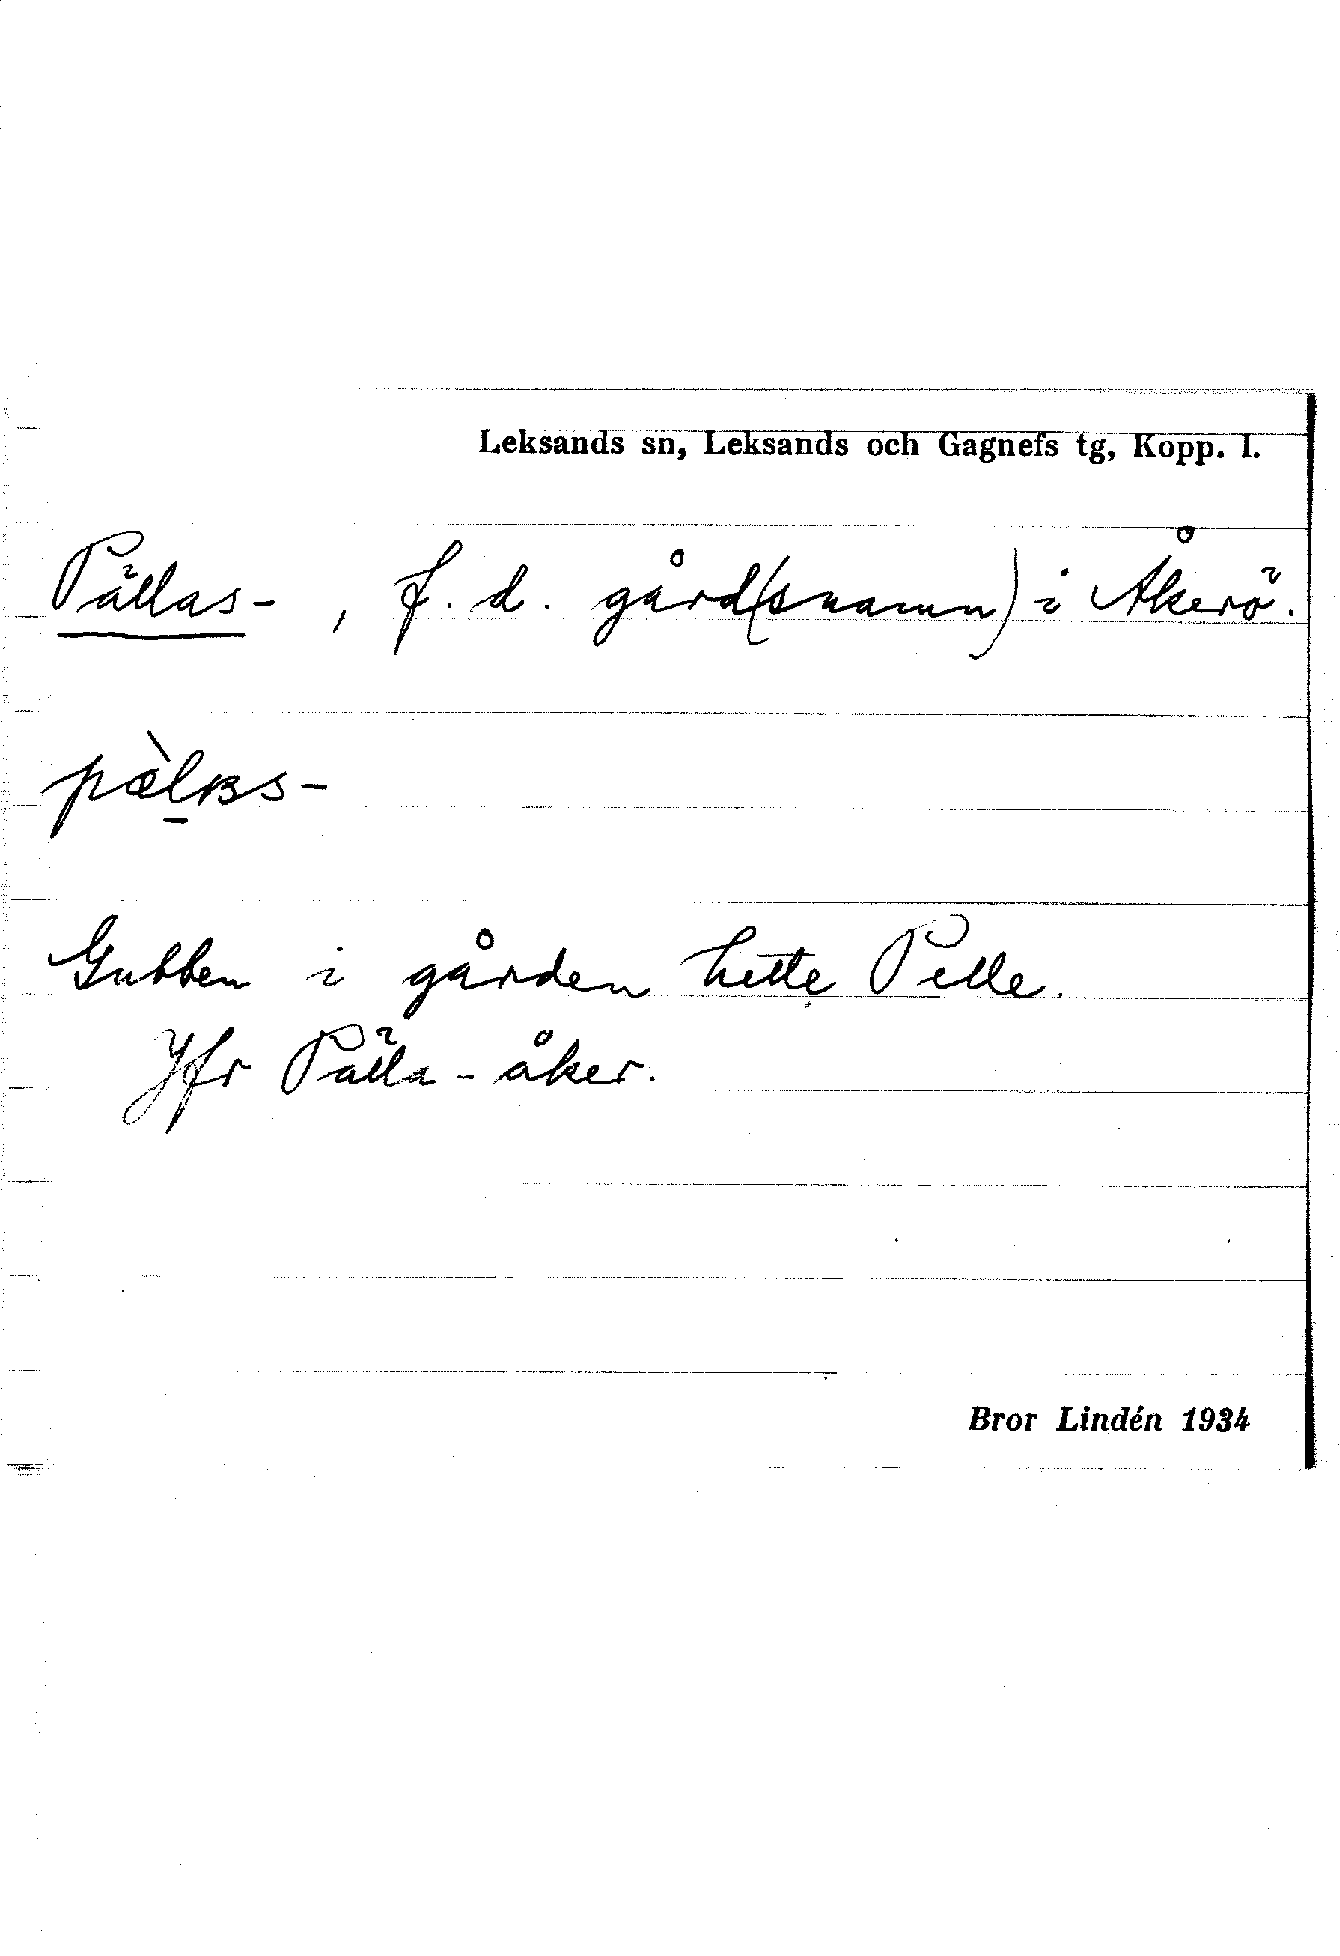 Leksands sn, Leksands och Gagnefs tg, Kopp. l.
Pällas-, f. d. gård(snamn) i Åkerö.
Gubben i gården hette Pelle.
Jfr Pälla-åker.
Bror Lindén 1934